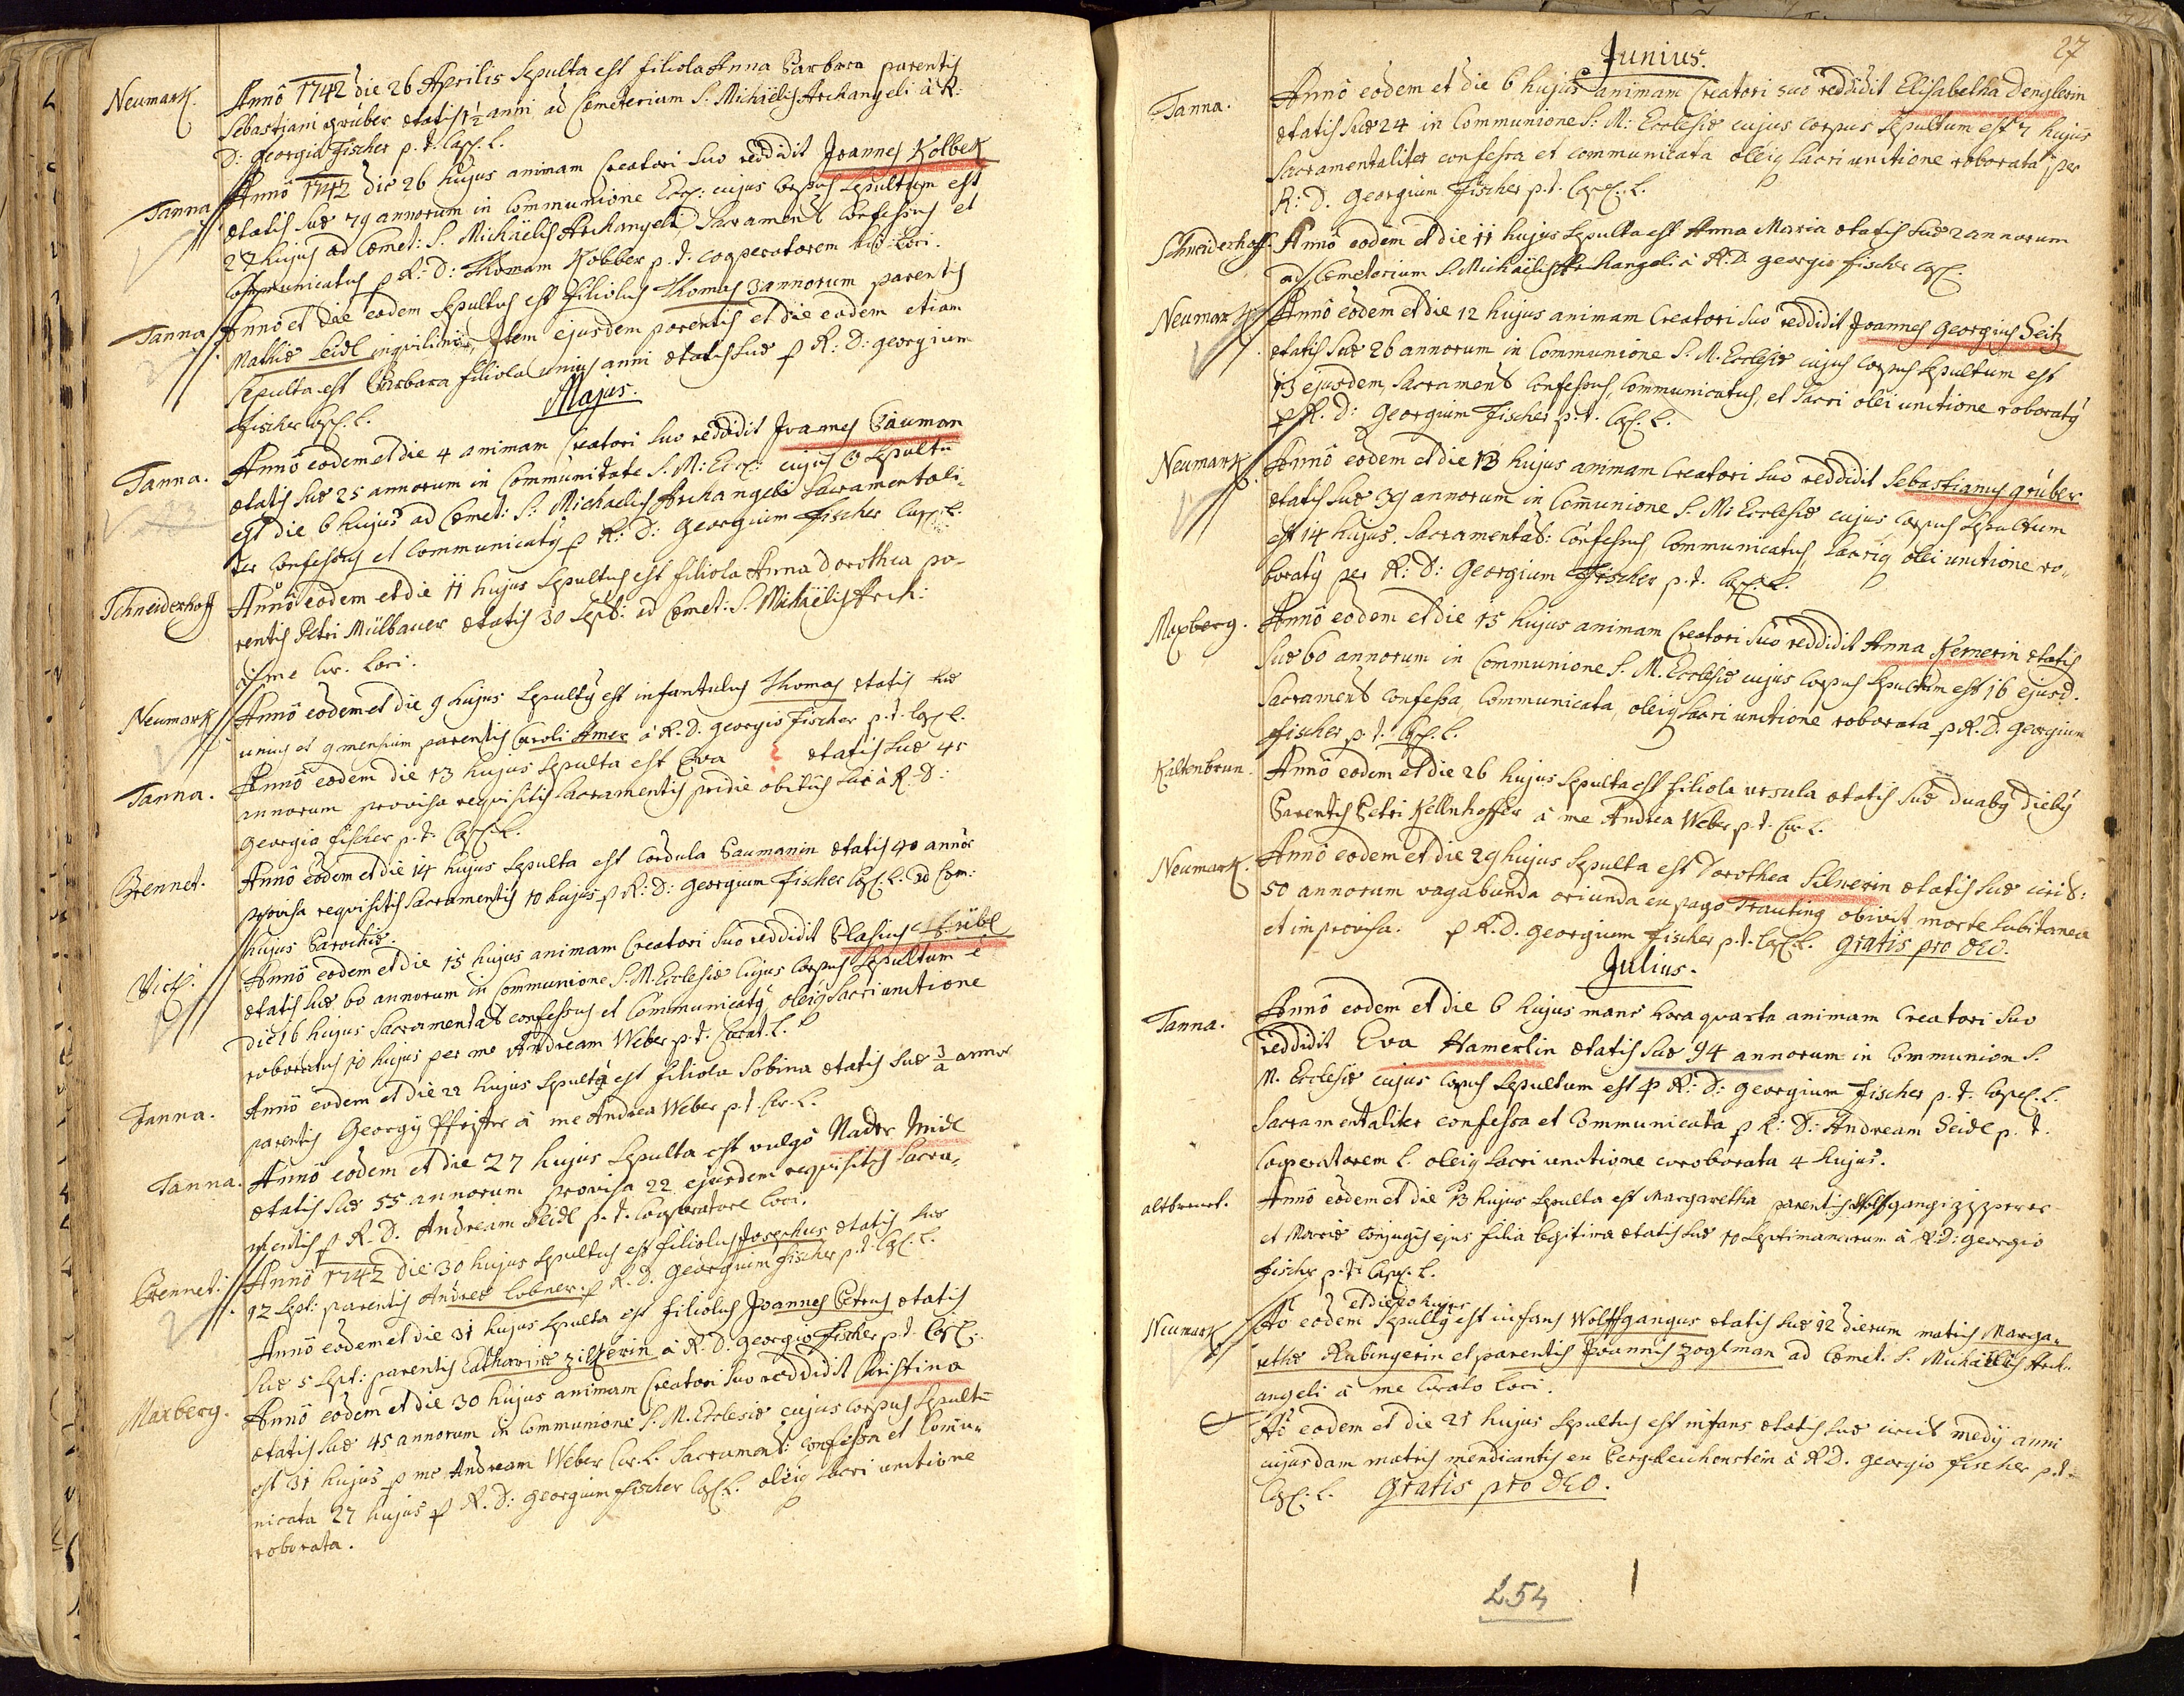 Neumark. Annô 1742 die 26 Aprilis sepulta est filiola Anna Barbara parentis
Sebastiani Grúber ætatis 1½ anni ad Cœmeterium S: Michäelis Archangeli à R:
D: Georgio Fischer p. t. Cap. L.
Tanna Annô 1742 die 26 hujus animam Creatori suo reddidit Joannes Kolbek
ætatis suæ 79 annorum in Communione Eccl: cujus corpus sepultum est
27 hujus ad Cœmet: S. Michäelis Archangeli, Sacrament: Confessus et
Communicatus p R: D: Thomam Kobber p. t. Cooperatorem hic Loci.
Tanna Annô et die eodem sepultus est filiolus Thomas 3 annorum parentis
Mathiæ Seidl inquilini, Item ejusdem parentis et die eodem etiam
sepulta est Barbara filiola unius anni ætatis suæ p R: D: Georgium
Fischer Cap. L.
Majus.
Tanna. Annô eodem et die 4 animam Creatori suo reddidit Joannes Bäuman
ætatis suæ 25 annorum in Communitate S. M: Eccl: cujus C sepultū
23
est die 6 hujus ad Cœmet: S: Michaelis Archangeli Sacramentali-
ter Confessus et Communicatȳ p R: D: Georgium Fischer Cap: L.
Schneiderhoff Annô eodem et die 11 hujus sepultus est filiola Anna Dorothea pa-
rentis Petri Mülbauer ætatis 30 Sept: ad Cœmet: S. Michäelis Arch:
à me Cur. Loci.
Neumark Annô eodem et die 9 hujus sepultȳ est infantulus Thomas ætatis suæ
unius et 9 mensium parentis Caroli Amer à R. D. Georgio Fischer p. t. Cap. L.
Tanna. Annô eodem die 13 hujus sepulta est Eva ætatis suæ 45
annorum provisa requisitis Sacramentis pridie obitus sui à R. D:
Georgio Fischer p. t. Cap. L.
Grennet. Annô eodem et die 14 hujus sepulta est Cordula Baumanin ætatis 40 annor
provisa requisitis Sacramentis 10 hujus p R: D: Georgium Fischer Cap. L. ad Cœm:
hujus Parochiæ.
Annô eodem et die 15 hujus animam Creatori suo reddidit Blasius
ætatis suæ 60 annorum in Communione S. M. Ecclesiæ cujus corpus sepultum ē
die 16 hujus Sacramental: confessus et Communicatȳ oleiq sacri unctione
roboratus 10 hujus per me Andream Weber p. t. Curat. L.
Tanna. Annô eodem et die 22 hujus sepulta est filiola Sabina ætatis suæ anno
parentis Georgij Pfister à me Andrea Weber p. t. Cur. L.
Tanna. Annô eodem et die 27 hujus sepulta est vulgò Nader Midl
ætatis suæ 55 annorum provisa 22 ejusdem requisitis Sacra-
mentis p R. D. Andream Seidl p. t. Cooperatore Loci.
Grennet. Annô 1742 die 30 hujus sepultus est filiolus Josephus ætatis suæ
12 Sept: parentis Andreæ Lobner. p R. D. Georgium Fischer p. t. Cap. L.
Annô eodem et die 31 hujus sepulta est filiolus Joannes Petrus ætatis
suæ 5 Sept: parentis Catharinæ Zilkerin à R. D. Georgio Fischer p. t. Cap.
Maxberg. Annô eodem et die 30 hujus animam Creatori suo reddidit Christina
ætatis suæ 45 annorum in Communione S. M. Ecclesiæ cujus corpus sepultū
est 31 hujus p me Andream Weber Cur. L. Sacrament: confessa et Comu-
nicata 27 hujus p R. D: Georgium Fischer Cap. L. oleiq sacri unctione
roborata.
27
Junius.
Tanna. Annô eodem et die 6 hujus animam Creatori suo reddidit Elisabetha Denglerin
ætatis suæ 24 in Communione S: M: Ecclesiæ cujus corpus sepultum est 7 hujus
Sacramentaliter confessa et communicata oleiq sacri unctione roborata per
R: D. Georgium Fischer p. t. Cap. L.
Schneiderhoff. Annô eodem et die 11 hujus sepulta est Anna Maria ætatis suæ 2 annorum
ad Cœmeterium S. Michäelis Archangeli à R. D. Georgio Fischer Cap.
Neumark Annô eodem et die 12 hujus animam Creatori suo reddidit Joannes Georgius Seitz
ætatis suæ 26 annorum in Communione S. M. Ecclesiæ cujus corpus sepultum est
13 ejusdem, Sacrament: Confessus, Communicatus, et Sacri olei unctione roboratȳ
p R. D: Georgium Fischer p. t. Cap. L.
Neumark Annô eodem et die 13 hujus animam Creatori suo reddidit Sebastianus Grúber
ætatis suæ 39 annorum in Com̄unione S. M: Ecclesiæ cujus corpus sepultum
est 14 hujus. Sacramental: Confessus Communicatus, sacriq olei unctione ro-
boratȳ per R: D: Georgium Fischer p. t. Cap. L.
Maxberg. Annô eodem et die 15 hujus animam Creatori suo reddidit Anna Kernerin ætatis
suæ 60 annorum in Communione S. M. Ecclesiæ cujus corpus sepultum est 16 ejusd.
Sacrament: confessa, Communicata, oleiq sacri unctione roborata p R. D. Georgium
Fischer p. t. Cap. L.
Kaltenbrun. Annô eodem et die 26 hujus sepulta est filiola Ursula ætatis suæ duabȳ diebȳ
Parentis Petri Kellnhoffer à me Andrea Weber p. t. Cur. L.
Neumark. Annô eodem et die 29 hujus sepulta est Dorothea Silnerin ætatis suæ circit:
50 annorum vagabunda oriunda ex pago Trauting obivit morte subitanea
et improvisa. p R. D. Georgium Fischer p. t. Cap. L. Gratis pro DEO.
Julius.
Tanna. Annô eodem et die 6 hujus mane hora quarta animam Creatori suo
reddidit Eva Hamerlin ætatis suæ 94 annorum in Communione S.
M. Ecclesiæ cujus corpus sepultum est p R: D: Georgium Fischer p. t. Cap. L.
Sacramentaliter confessa et Communicata p R: D: Andream Seidl p. t.
Cooperatorem L. oleiq sacri unctione coroborata 4 hujus.
Annô eodem et die 13 hujus sepulta est Margaretha parentis Wolfgangi Zizperer
et Mariæ conjugis ejus filia legitima ætatis suæ 10 septimanarum à R. D: Georgio
Fischer p. t. Cap. L.
et die 20 hujus
Neumark Aō eodem sepultȳ est infans Wolffgangus ætatis suæ 12 dierum matris Marga-
rethæ Rubingerin et parentis Joannis Zoglman ad Cœmet. S. Michäelis Arch-
angeli à me Curato Loci.
Aō eodem et die 21 hujus sepultus est infans ætatis suæ circit medij anni
cujusdam matris mendicantis ex Bergreichenstein à R. D. Georgio Fischer p. t.
Cap. L. Gratis pro DEO.
L54